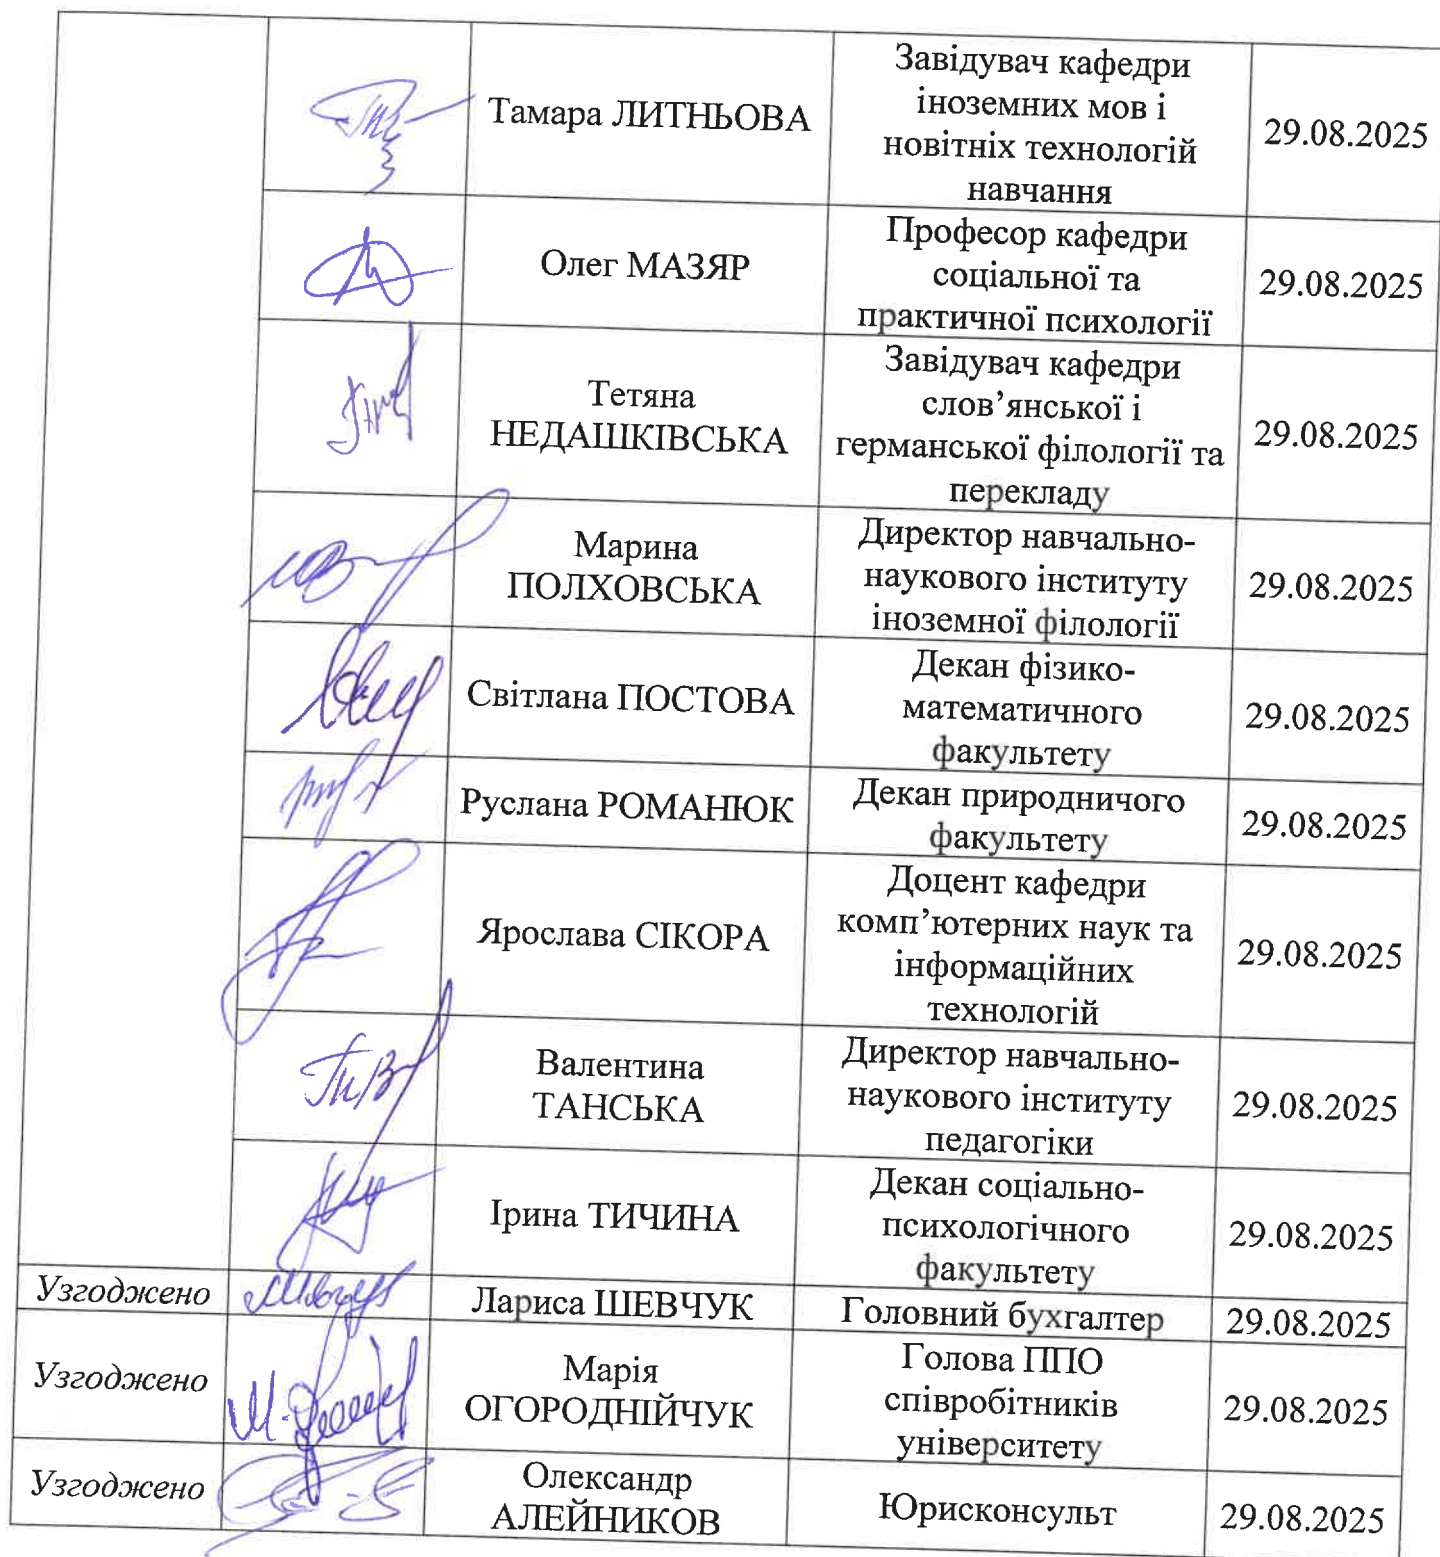 Тамара ЛИТНЬОВА
Завідувач кафедри
іноземних мов і
новітніх технологій
навчання
29.08.2025
Олег МАЗЯР
Професор кафедри
соціальної та
практичної психології
29.08.2025
Тетяна
НЕДАШКІВСЬКА
Завідувач кафедри
слов’янської і
германської філології та
перекладу
29.08.2025
Марина
ПОЛХОВСЬКА
Директор навчально-
наукового інституту
іноземної філології
29.08.2025
Світлана ПОСТОВА
Декан фізико-
математичного
факультету
29.08.2025
Руслана РОМАНЮК
Декан природничого
факультету
29.08.2025
Ярослава СІКОРА
Доцент кафедри
комп’ютерних наук та
інформаційних
технологій
29.08.2025
Валентина
ТАНСЬКА
Директор навчально-
наукового інституту
педагогіки
29.08.2025
Ірина ТИЧИНА
Декан соціально-
психологічного
факультету
29.08.2025
Узгоджено
Лариса ШЕВЧУК
Головний бухгалтер
29.08.2025
Узгоджено
Марія
ОГОРОДНІЙЧУК
Голова ППО
співробітників
університету
29.08.2025
Узгоджено
Олександр
АЛЕЙНИКОВ
Юрисконсульт
29.08.2025